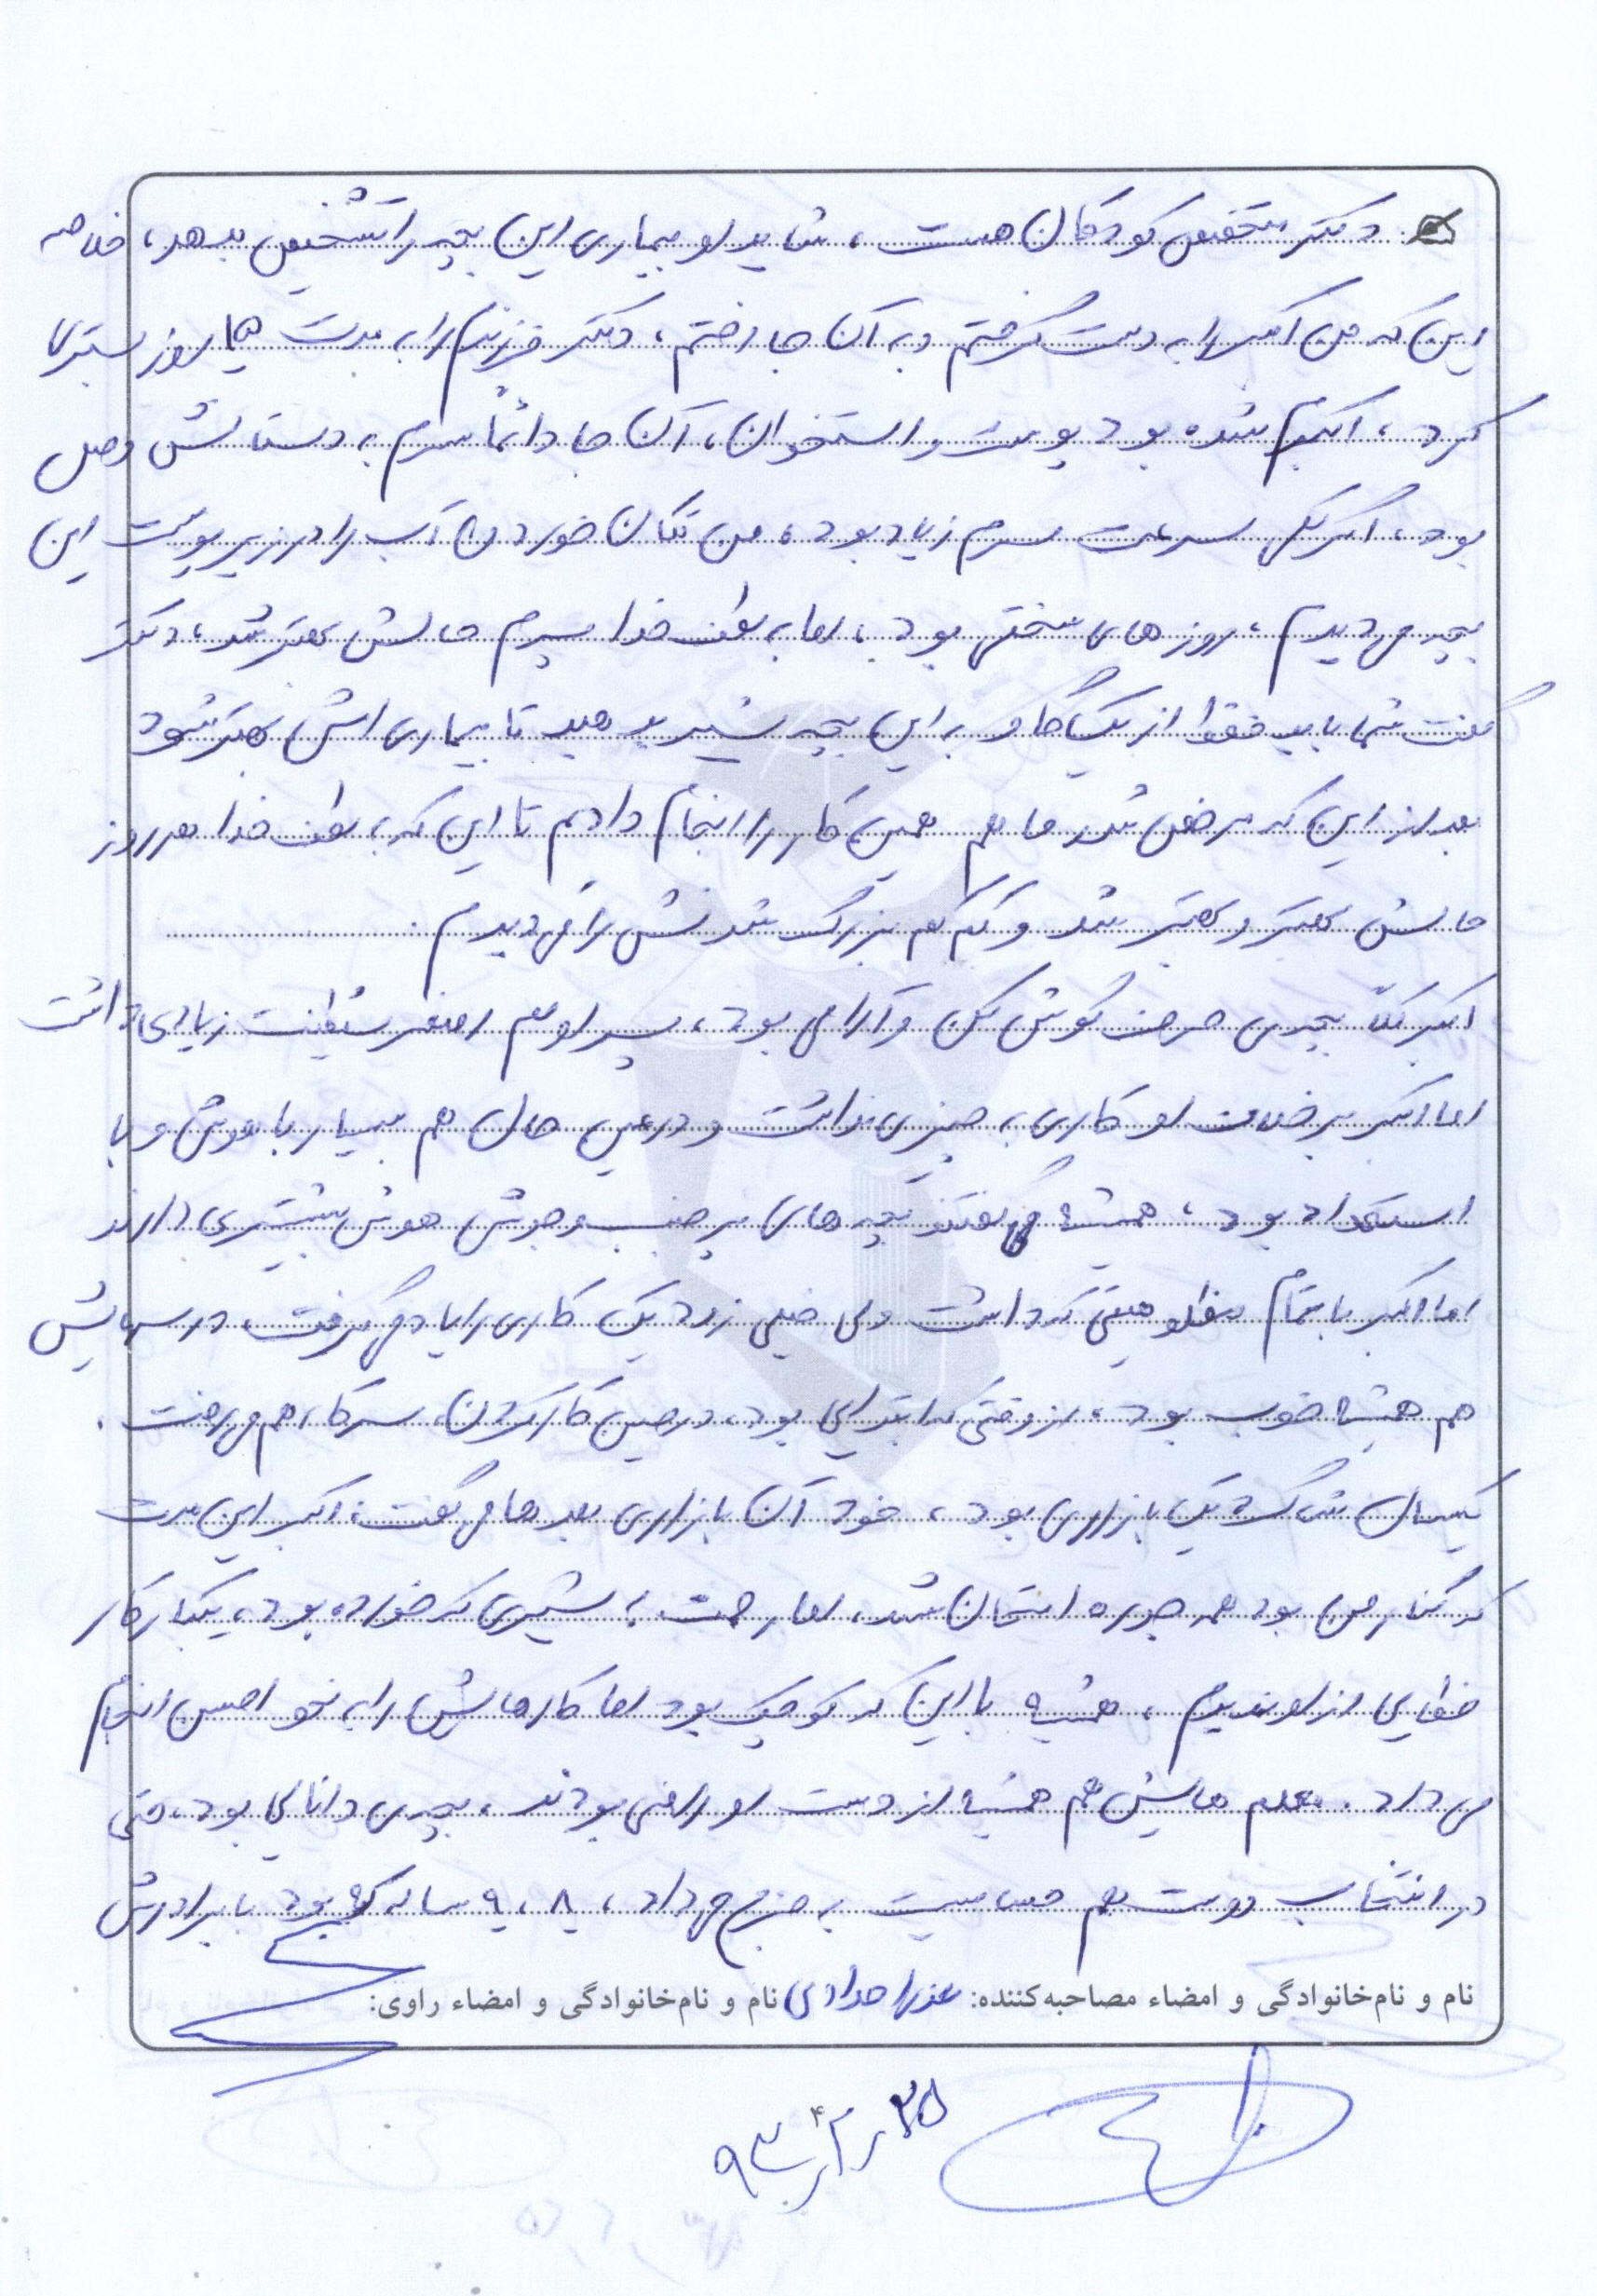 دکتر متخصص کودکان هست، شاید او بیماری این بچه را تشخیص بدهد، خلاصه
این که من اکبر را به دست گرفتم و به آن جا رفتم، دکتر فرزندم را به مدت ۱۵ روز بستری
کرد، اکبرم شده بود پوست و استخوان، آن جا دائماً سرم به دستانش وصل
بود، اگر یکم سرعت سرم زیاد بود، من تکان خوردن آب را در زیر پوست این
بچه می دیدم، روزهای سختی بود، اما به لطف خدا پسرم حالش بهتر شد، دکتر
گفت شما باید فقط از یک گاو به این بچه شیر بدهید تا بیماری اش بهتر شود
بعد از این که مرخص شد ما هم همین کار را انجام دادیم تا این که به لطف خدا هر روز
حالش بهتر و بهتر شد و کم کم بزرگ شدنش را می دیدم.
اکبر کلاً بچه ی حرف گوش کن و آرامی بود، پسر اولم اصغر شیطینت زیادی داشت
اما اکبر برخلاف او کاری به چیزی نداشت و در عین حال هم بسیار با هوش و با
استعداد بود، همیشه می گفتند بچه های پر جنب و جوش هوش بیشتری دارند
اما اکبر با تمام مظلومیتی که داشت ولی خیلی زود یک کاری را یاد می گرفت، درسهایش
هم همیشه خوب بود، از وقتی که ابتدایی بود، در حین کار کردن، سر کار هم می رفت.
یکسال شاگرد یک بازاری بود، خود آن بازاری بعدها می گفت، اکبر این مدت
که کنار من بود همه جوره امتحان شد، اما رحمت به شیری که خورده بود، یکبار کار
خطایی از او ندیدم، همیشه با این که کوچک بود اما کارهایش را به نحو احسن انجام
می داد. معلم هایش هم همیشه از دست او راضی بودند، بچه ی دانایی بود، حتی
در انتخاب دوست هم حساسیت به خرج می داد، ۸، ۹ ساله که بود با برادرش
نام و نام‌خانوادگی و امضاء مصاحبه‌کننده: عذرا حدادی نام و نام‌خانوادگی و امضاء راوی: